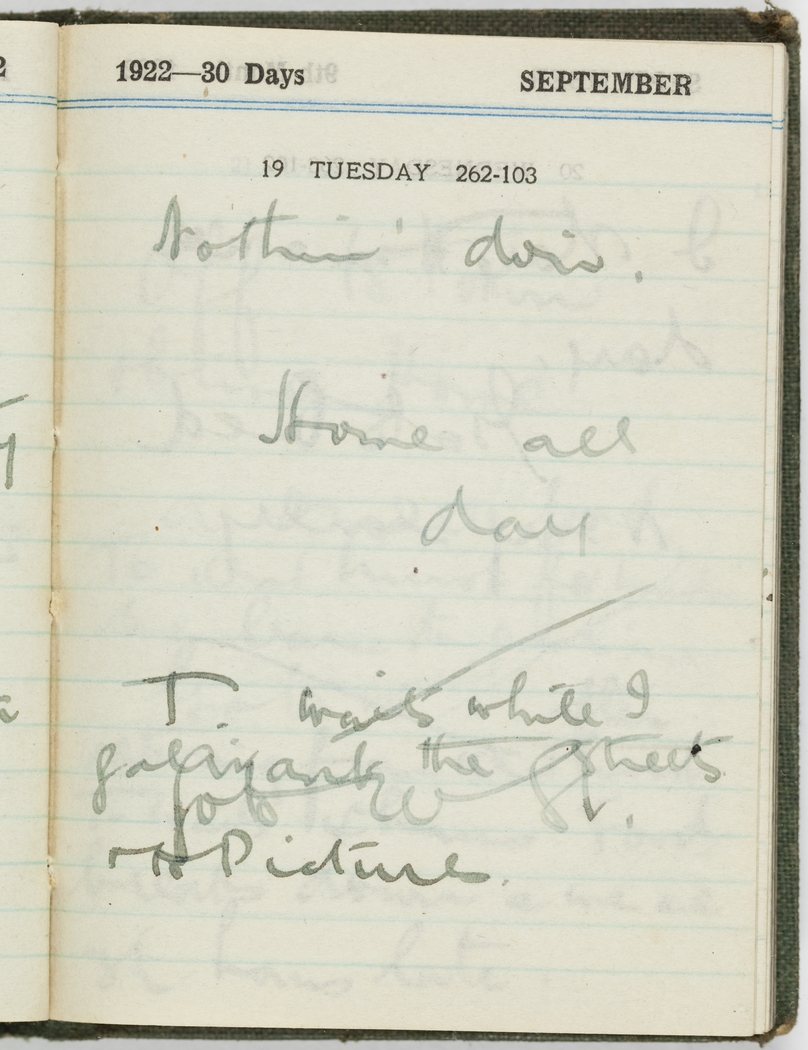 1922—30 Days SEPTEMBER
19 TUESDAY 262-103
Nothin' doin.
Home all
day
T. waits while I
the Streets
Pictures.